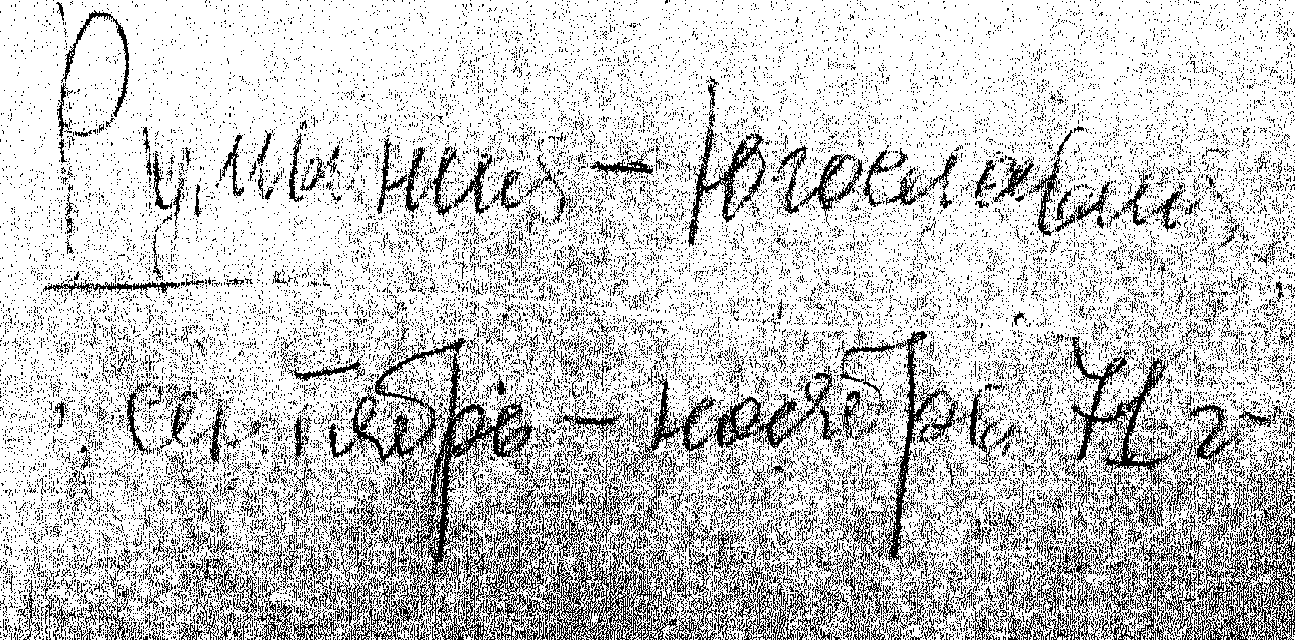 Румыния – Югославия
сентябрь – ноябрь 71 г